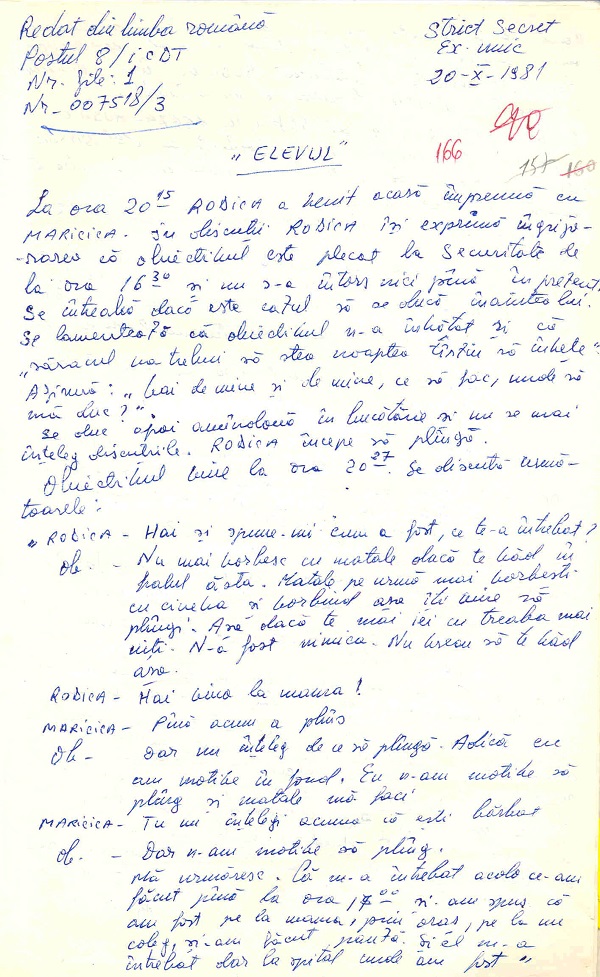 Redat din limba română
Strict Secret
Postul 8/i CDT
Ex. unic
Nr. file: 1
20-X-1981
Nr. 007518/3
„ELEVUL"
166
La ora 20 15 RODICA a venit acasă împreună cu
MARICICA. În discuții RODICA își exprimă îngrijo-
rarea că obiectivul este plecat la Securitate de
la ora 16 30 și nu s-a întors nici pînă în prezent.
Se întreabă dacă este cazul să se ducă înaintea lui.
Se lamentează că obiectivul n-a și că
„săracul va trebui să stea noaptea să înhețe".
Afirmă: „Vai de mine și de mine, ce să fac, unde să
mă duc?".
Se duc apoi amîndouă în bucătărie și nu se mai
înțeleg discuțiile. RODICA începe să plîngă.
Obiectivul vine la ora 20 27. Se discută urmă-
toarele:
„RODICA - Hai și spune-mi cum a fost, ce te-a întrebat?
Ob. - Nu mai vorbesc cu matale dacă te văd în
halul ăsta. Matale pe urmă mai vorbești
cu cineva și vorbind așa îți vine să
plîngi. Așa dacă te mai iei cu treaba mai
uiți. N-a fost nimica. Nu vreau să te văd
așa.
RODICA - Hai vino la mama!
MARICICA - Pînă acum a plîns
Ob - Dar nu înțeleg de ce să plîngă. Adică eu
am motive în fond. Eu n-am motive să
plîng și matale mă faci
MARICICA - Tu nu înțelegi acuma că ești bărbat
Ob. - Dar n-am motive să plîng.
Mă urmăresc. Că m-a întrebat acolo ce-am
făcut pînă la ora 17 00 și-am spus că
am fost pe la mama, prin oraș, pe la un
coleg, și-am făcut pauză. Și el m-a
întrebat dar la spital unde am fost "